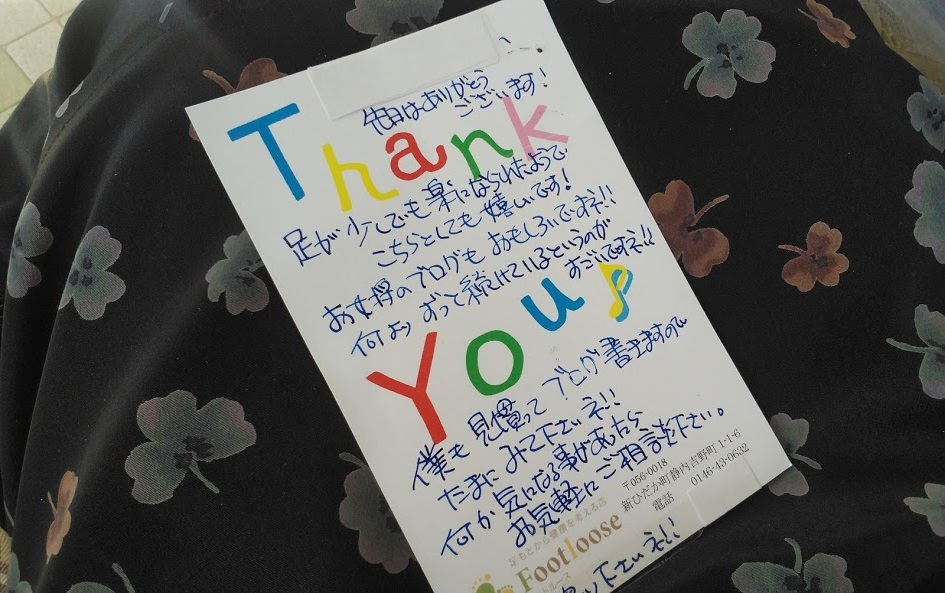 先日はありがとう
ございます!
Thank
足が少しでも楽になられたようで
こちらとしても嬉しいです!
お女将のブログもおもしろいですネ!!
何よりずっと続けているというのが
すごいですネ!!
You
僕も見慣って ブログ書きますので
たまにみて下さいネ!!
何か気になる事があったら
お気軽にご相談下さい。
〒056-0018
新ひだか町静内吉野町1-1-6
電話 0146-43-0632
足もとから健康を考える店
Footloose
下さいネ!!